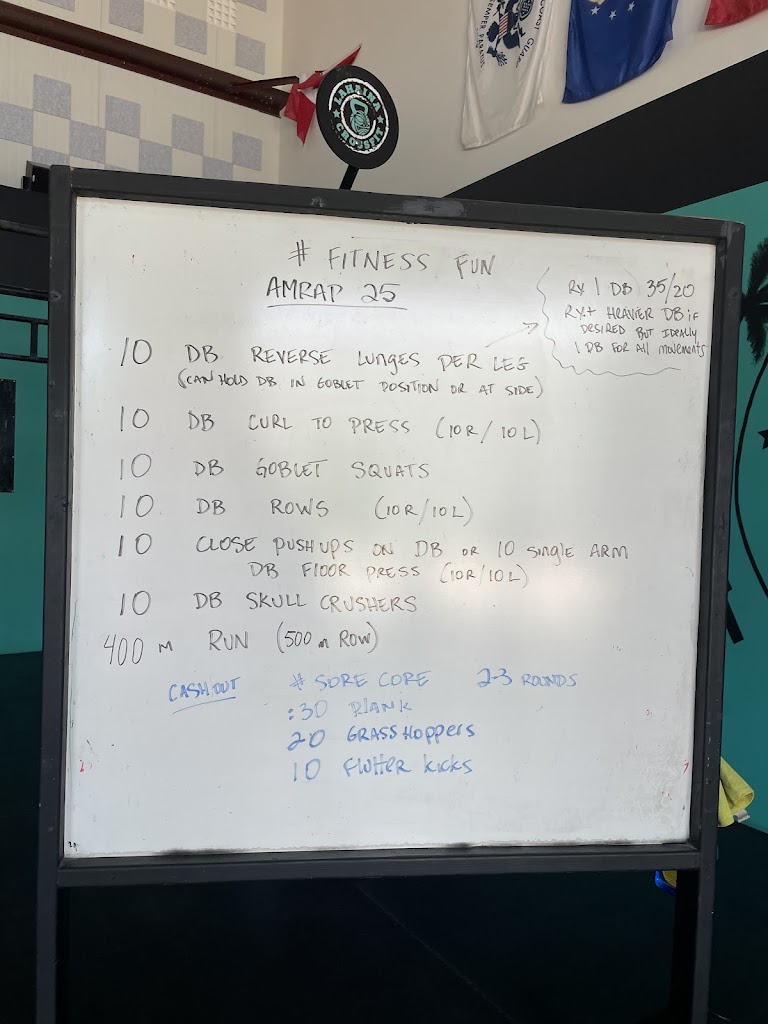 SEMPER PARATUS
COAST GUARD
LAHAINA
CROSSFIT
# FITNESS FUN
AMRAP 25
Rx 1 DB 35/20
Rx+ HEAVIER DB if
DESIRED BUT IDEALLY
1 DB FOR All movements
10 DB REVERSE Lunges PER LEG
(CAN HOLD DB IN GOBLET POSITION OR AT SIDE)
10 DB CURL TO PRESS (10R/10L)
10 DB GOBLET SQUATS
10 DB ROWS (10R/10L)
10 CLOSE PUSHUPS ON DB OR 10 Single ARM
DB FLOOR PRESS (10R/10L)
10 DB SKULL CRUSHERS
400 m RUN (500 m ROW)
CASH OUT # SORE CORE 2-3 ROUNDS
:30 PLANK
20 GRASSHoppers
10 Flutter kicks